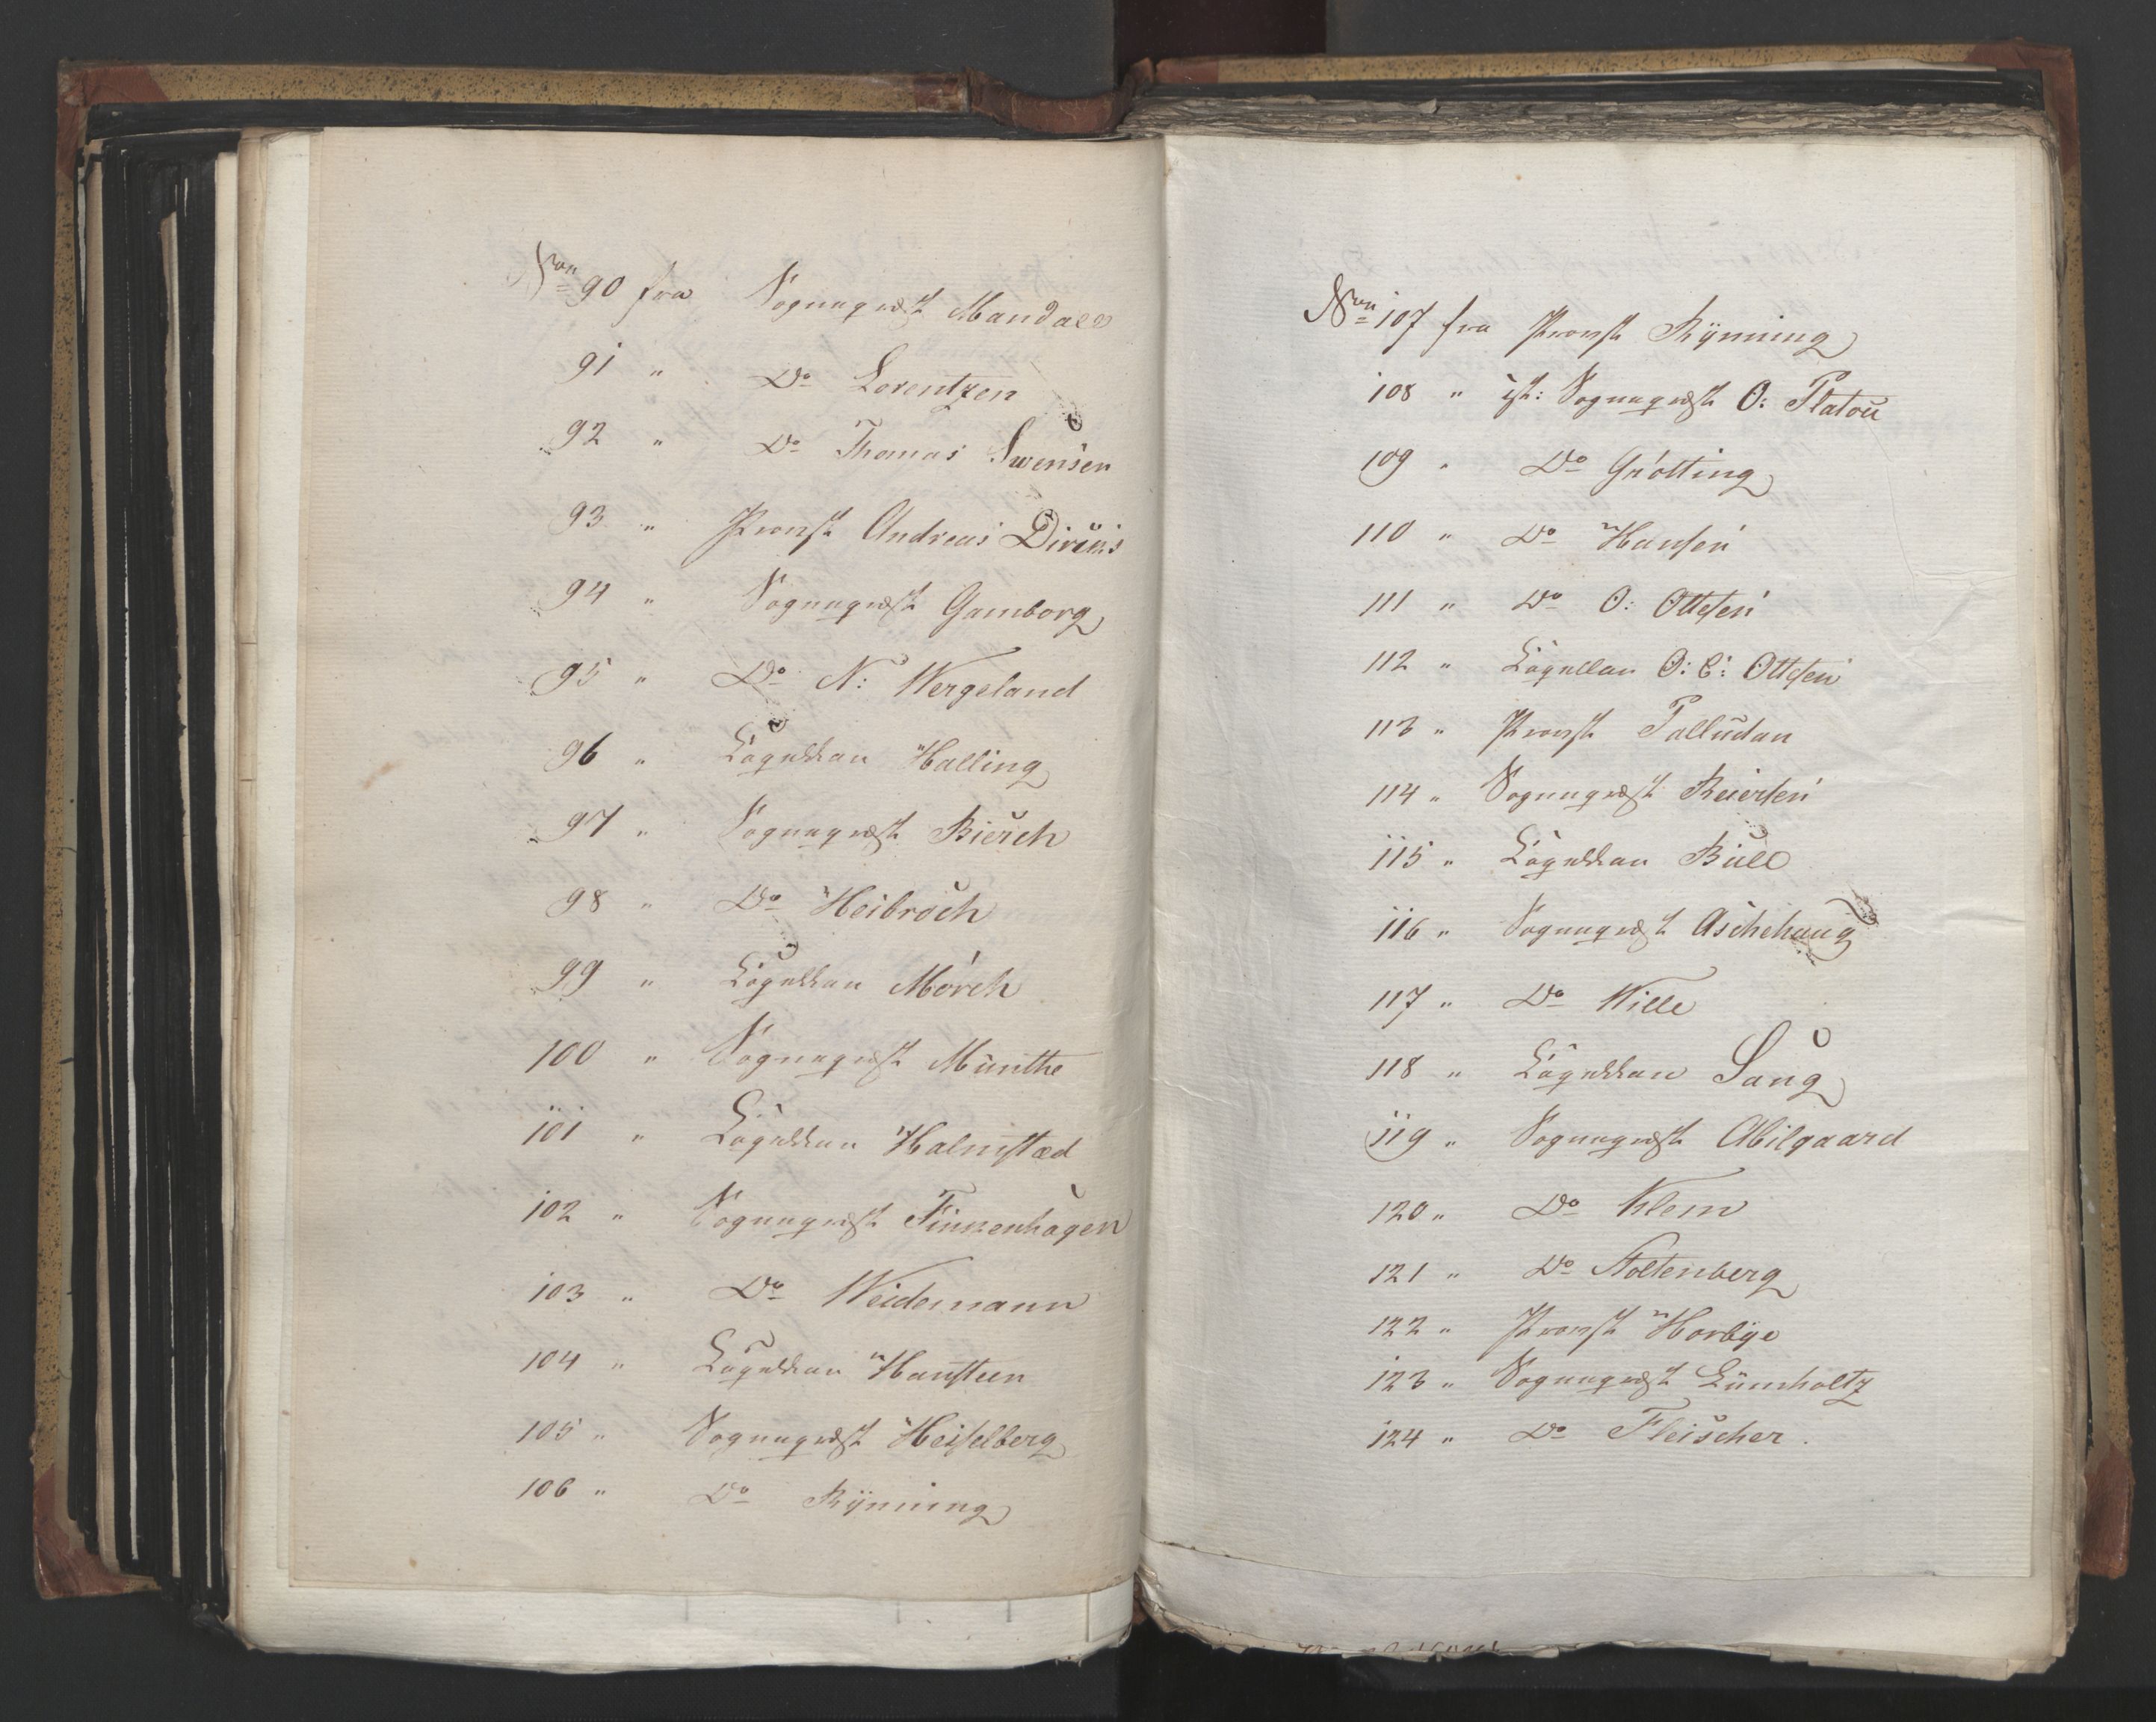 Non 90 fra Sognepræst Mandall
91 " Do Lorentzen
92 " Do Thomas Swensen
93 " Provst Andreas Diriks
94 " Sognepræst Gamborg
95 " Do N: Wergeland
96 " Capellan Halling
97 " Sognepræst Bierch
98 " Do Heibroch
99 " Capellan Mörch
100 " Sognepræst Münthe
101 " Capellan Halmstad
102 " Sognepræst Finkenhagen
103 " Do Weidemann
104 " Capellan Hansteen
105 " Sognepræst Heiselberg
106 " Do Rÿnning
Non 107 fra Provst Rÿnning
108 " Sognepræst O: Platoü
109 " Do Grötting
110 " Do Hansen
111 " Do O: Ottesen
112 " Capellan O: C: Ottesen
113 " Provst Pallüdan
114 " Sognepræst Reiersen
115 " Capellan Büll
116 " Sognepræst Aschehaug
117 " Do Wille
118 " Capellan Saug
119 " Sognepræst Abilgaard
120 " Do Klem
121 " Do Stoltenberg
122 " Provst Horbÿe
123 " Sognepræst Lümholtz
124 " Do Fleischer.